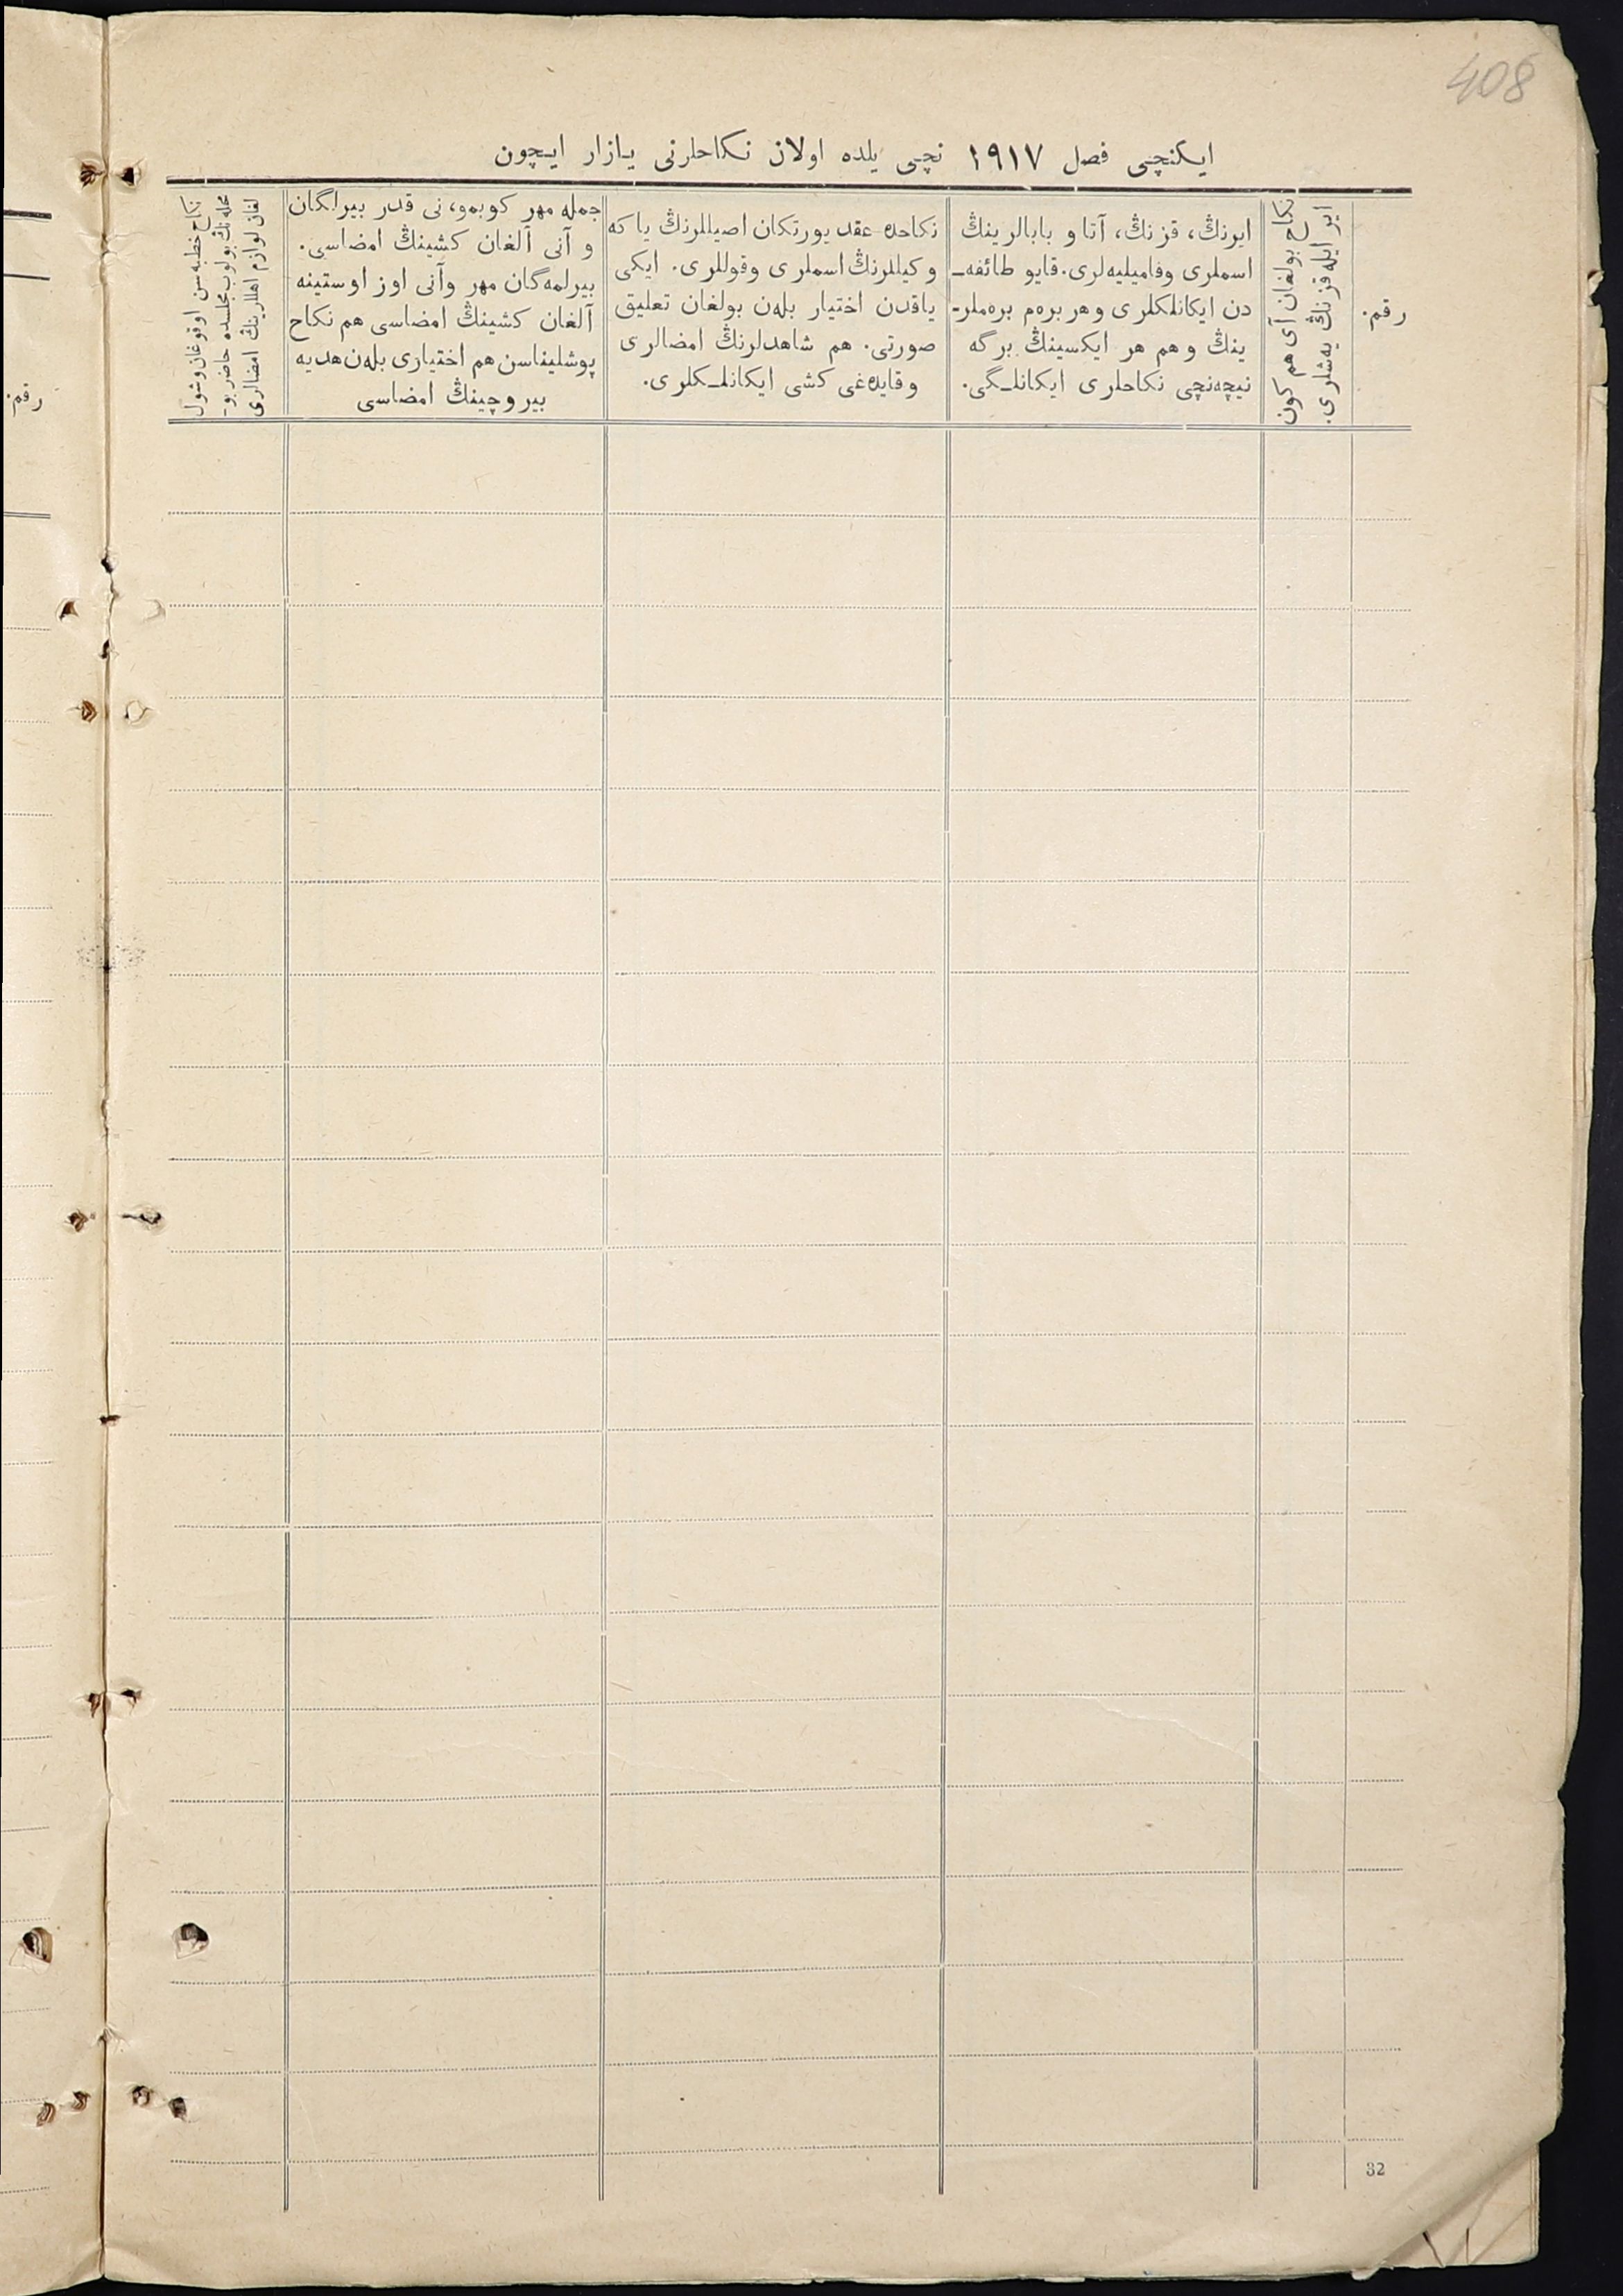 408
ایکنچی فصل ١٩١٧ نچی یلده اولان نکاحلرنی یازار ایچون
رقم.
نکاح بولغان آی هم کون
ایر ایله قزنڭ یه‌شلری.
ایرنڭ، قزنڭ، آتا و بابالرینڭ
اسملری وفامیلیه‌لری. قایو طائفه‌ـ
دن ایکانلکلری و هر بره‌م بره‌ملر-
ینڭ و هم هر ایکسینڭ برگه
نیچه‌نچی نکاحلری ایکانلـگی.
نکاحده عقد یورتکان اصیللرنڭ یا که
وکیللرنڭ اسملری وقوللری. ایکی
یاقدن اختیار بله‌ن بولغان تعلیق
صورتی. هم شاهدلرنڭ امضالری
وقایده‌غی کشی ایکانلـکلری.
جمله مهر کوبمو، نی قدر بیرلگان
و آنی آلغان کشینڭ امضاسی.
بیرلمه‌گان مهر وآنی اوز اوستینه
آلغان کشینڭ امضاسی هم نکاح
پوشلیناسن هم اختیاری بله‌ن هدیه
بیروچینڭ امضاسی
نکاح خطبه‌سن اوقوغان وشول
محله‌نڭ بولوب مجلسده حاضر بو-
لغان لوازم اهللرینڭ امضالری
رقم.
32